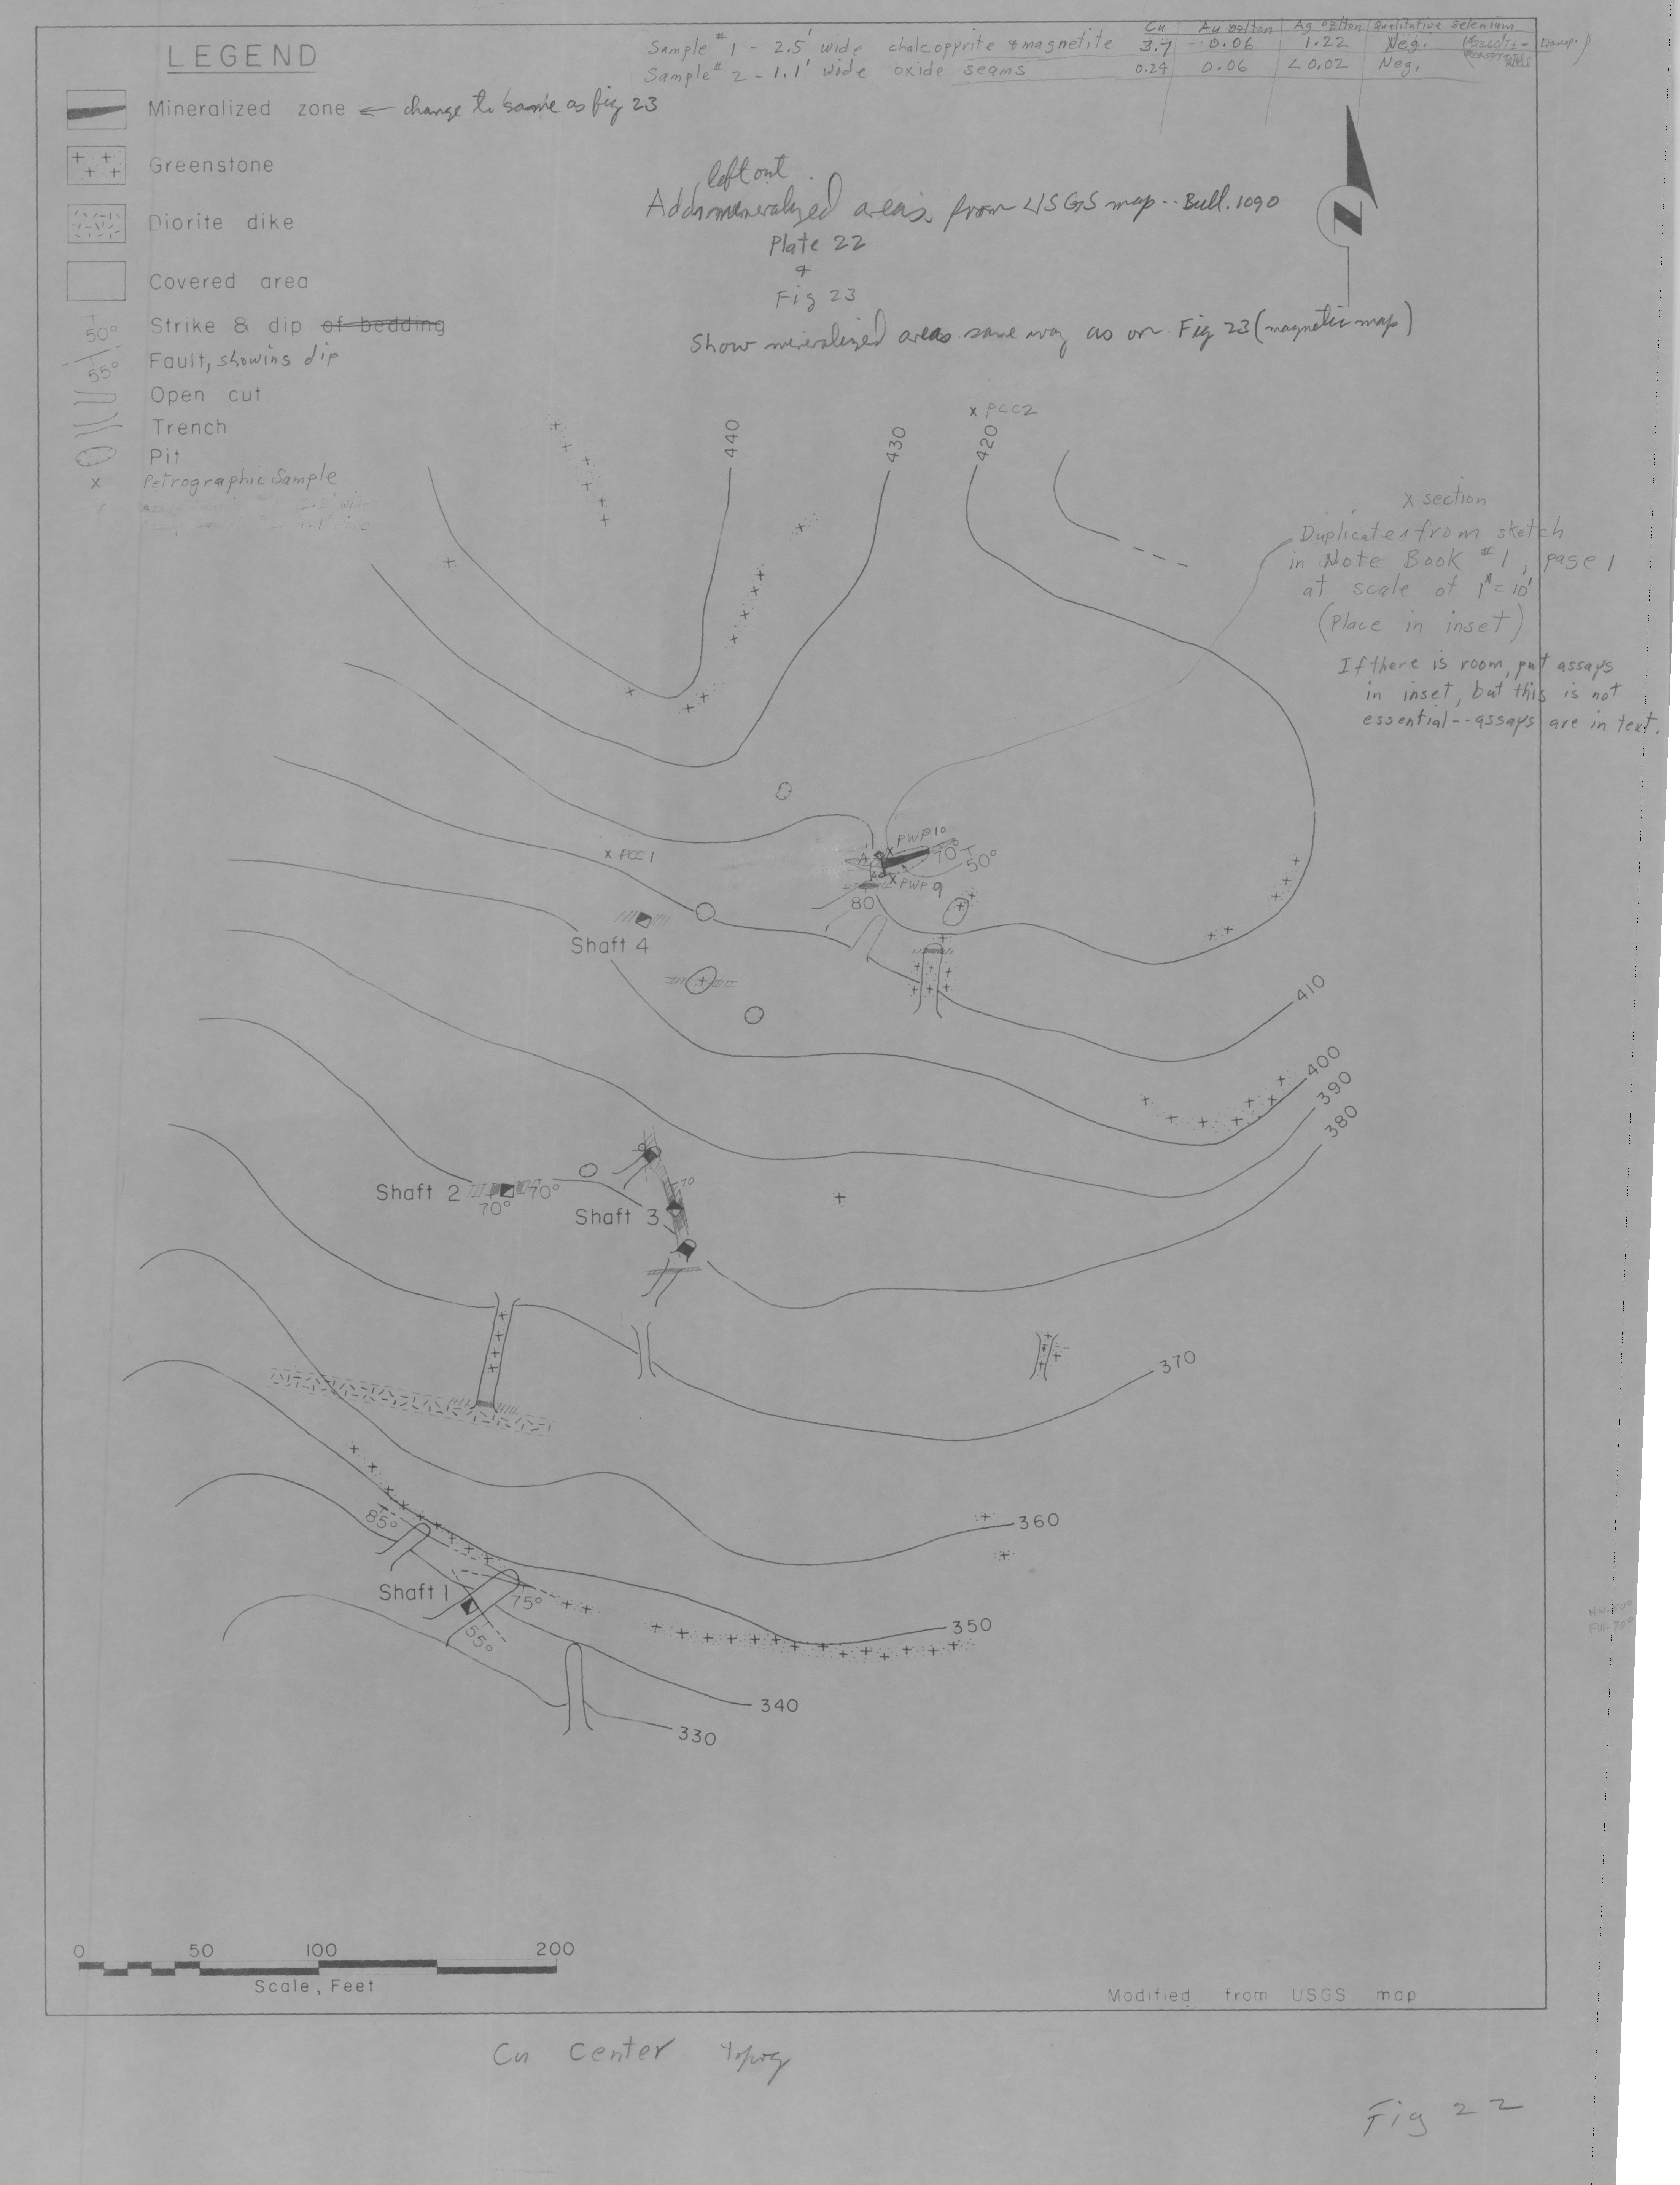 LEGEND
Cu Au oz/ton Ag oz/ton Qualitative Selenium
Sample #1 - 2.5' wide chalcopyrite & magnetite 3.7 - 0.06 1.22 Neg.
Sample #2 - 1.1' wide oxide seams 0.24 0.06 <0.02 Neg.
Mineralized zone ← change to same as fig 23
Greenstone
Diorite dike
Covered area
50° Strike & dip of bedding
55° Fault, showing dip
Open cut
Trench
Pit
x Petrographic Sample
left out
Add mineralized areas from USGS map -- Bull. 1090
Plate 22
&
Fig 23
Show mineralized areas same way as on Fig 23 (magnetic map)
N
x PCC2
440
430
420
x section
Duplicate from sketch
in Note Book #1, page 1
at scale of 1"=10'
(Place in inset)
If there is room, put assays
in inset, but this is not
essential--assays are in text.
PWP10
x PCC1
70°
50°
x PWP9
80
Shaft 4
410
400
390
380
Shaft 2
70°
70°
70
Shaft 3
370
85°
360
Shaft 1
75°
55°
350
340
330
0 50 100 200
Scale, Feet
Modified from USGS map
Cu Center topog
Fig 22